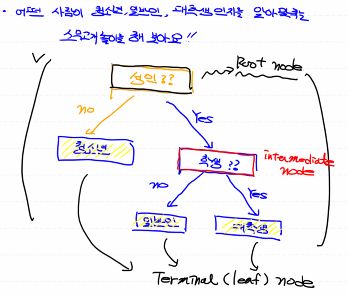 • 어떤 사람이 청소년, 일반인, 대학생인지를 알아맞추는
스무고개놀이를 해 보아요!!
성인??
Root node
no
Yes
청소년
학생??
intermediate
node
no
Yes
일반인
대학생
Terminal (leaf) node